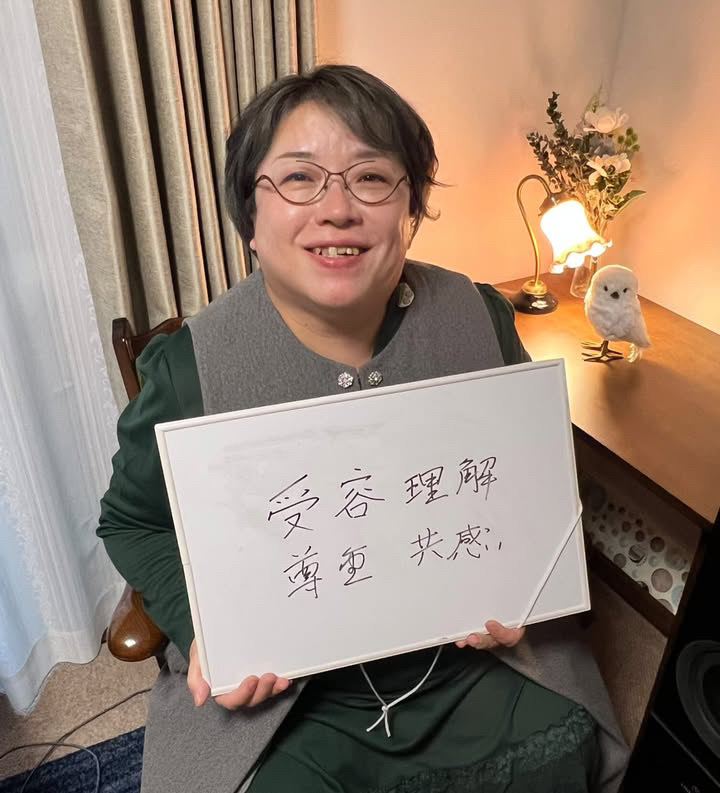 受容 理解
尊重 共感